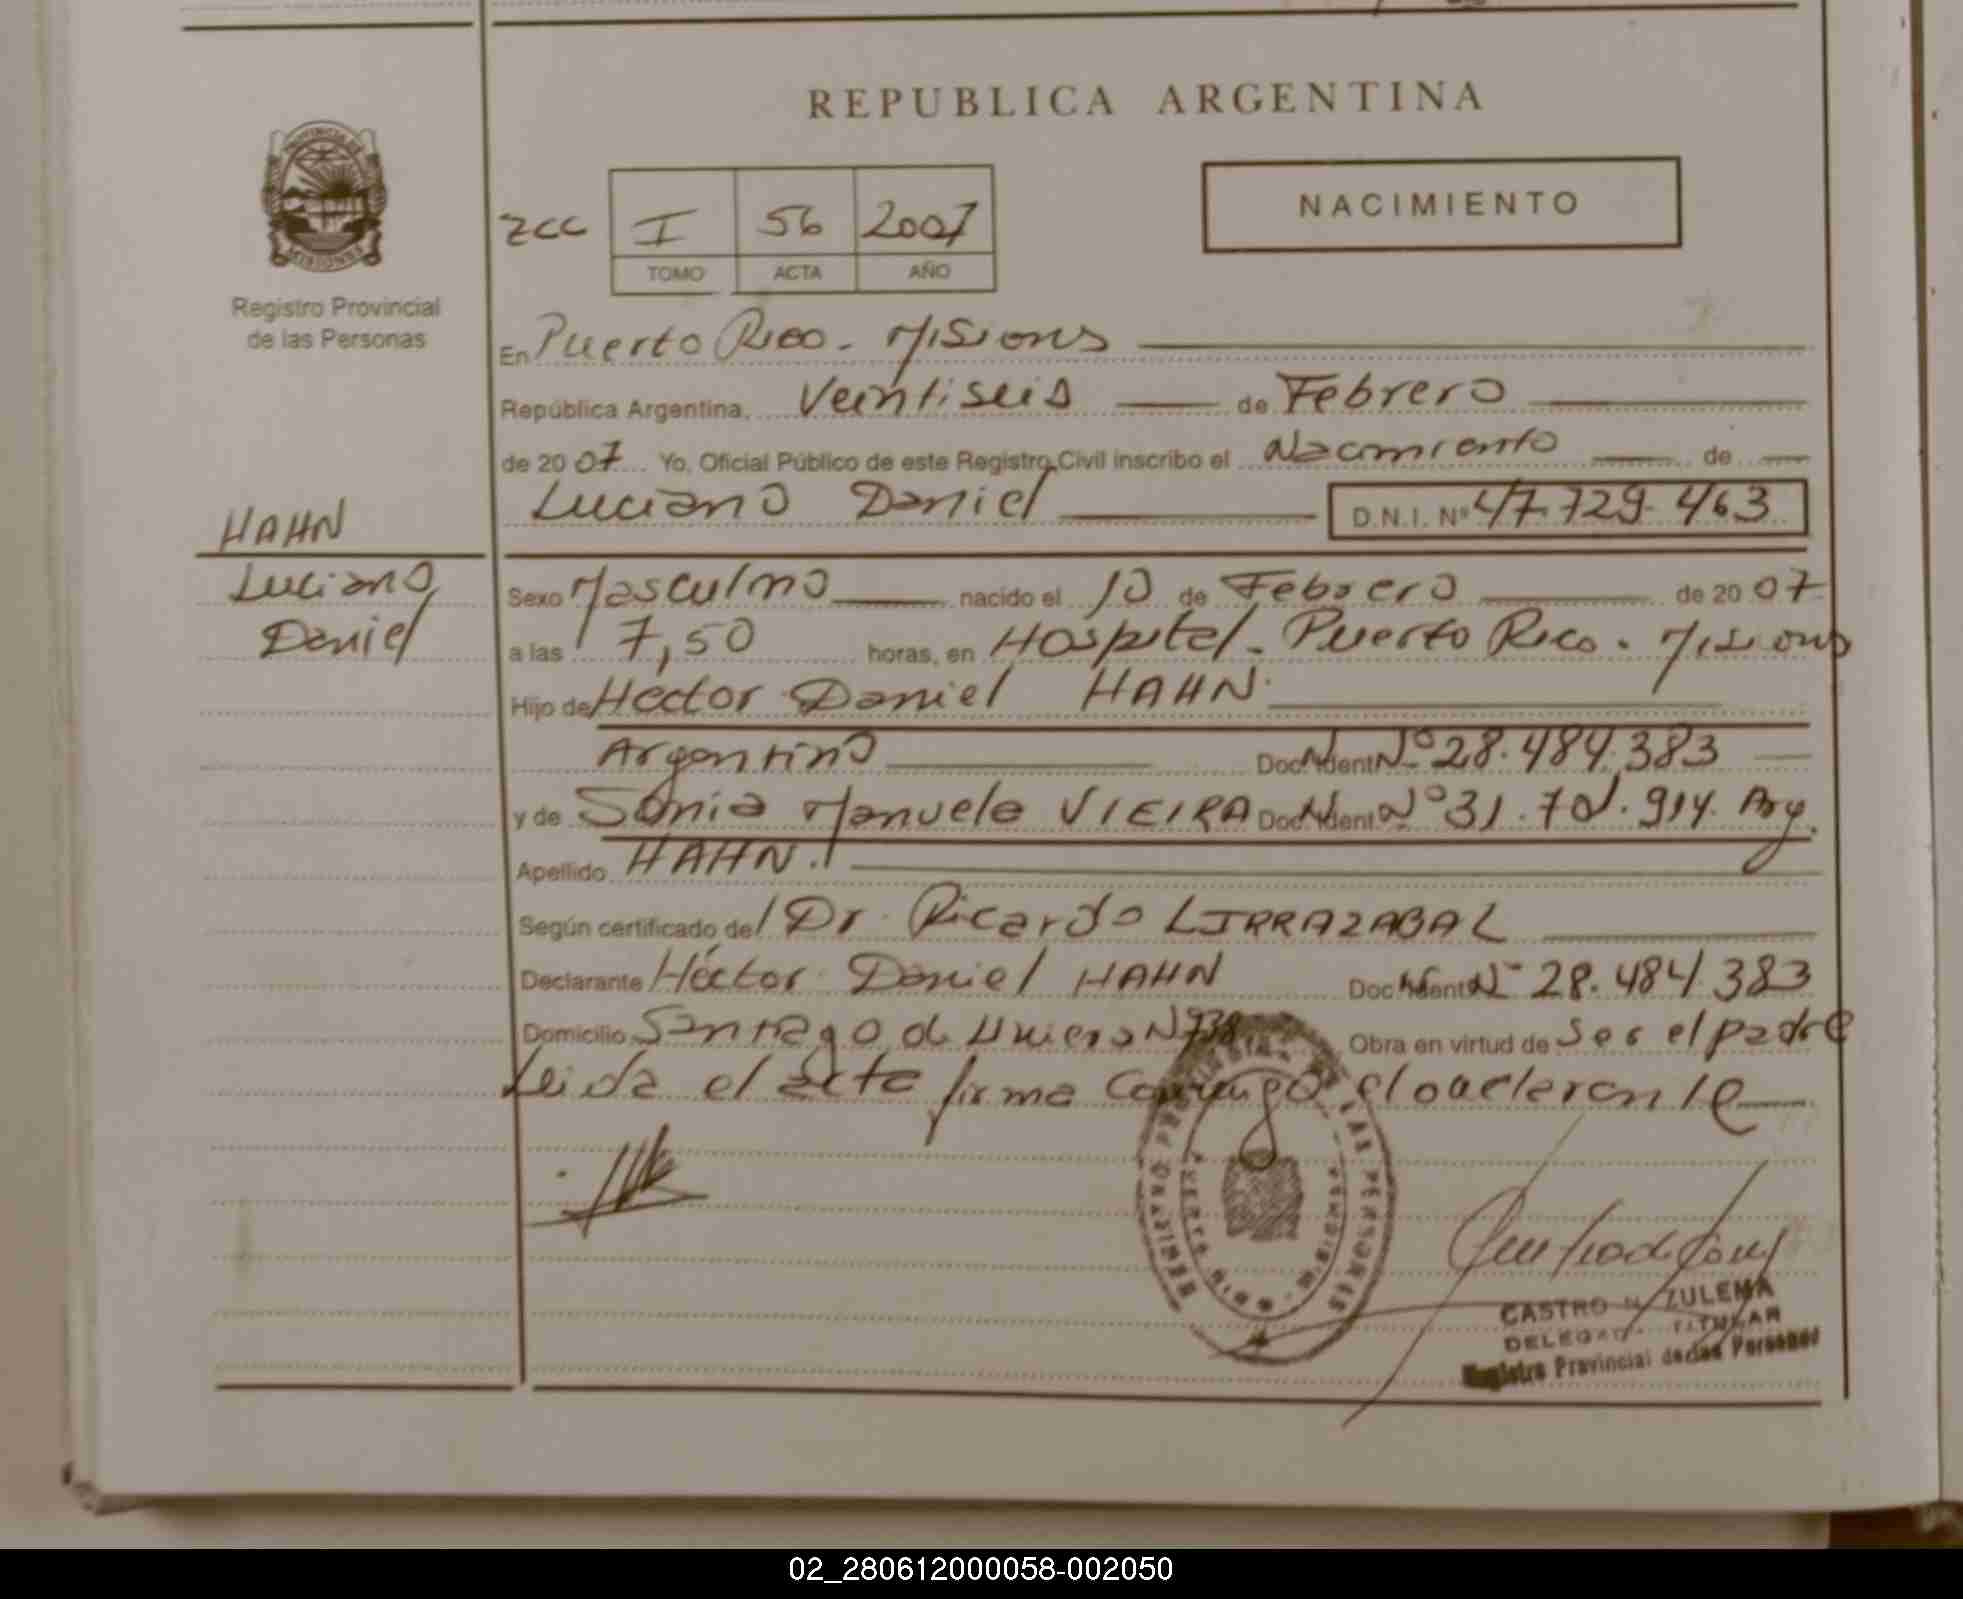 REPUBLICA ARGENTINA
NACIMIENTO
zcc I 56 2007
TOMO ACTA AÑO
PROVINCIA DE
MISIONES
Registro Provincial
de las Personas
En Puerto Rico - Misions
República Argentina, Veintiseis de Febrero
de 2007 Yo, Oficial Público de este Registro Civil inscribo el Nacimiento de
Luciano Daniel D.N.I. Nº 47.729.463
HAHN
Luciano
Daniel
Sexo Masculino nacido el 10 de Febrero de 2007
a las 7,50 horas, en Hospital - Puerto Rico - Misions
Hijo de Hector Daniel HAHN
Argentino Doc. Ident. Nº 28.484.383
y de Sonia Manuela VIEIRA Doc. Ident. Nº 31. .914. Arg.
Apellido HAHN.
Según certificado de Dr. Ricardo LIRRAZABAL
Declarante Héctor Daniel HAHN Doc. Ident. Nº 28.484.383
Domicilio Santiago de Obra en virtud de Ser el padre
Leida el acta firma Conmigo el declarante
REGISTRO PROVINCIAL DE LAS PERSONAS
PUERTO RICO
CASTRO N. ZULEMA
DELEGADA TITULAR
Registro Provincial de las Personas
02_280612000058-002050